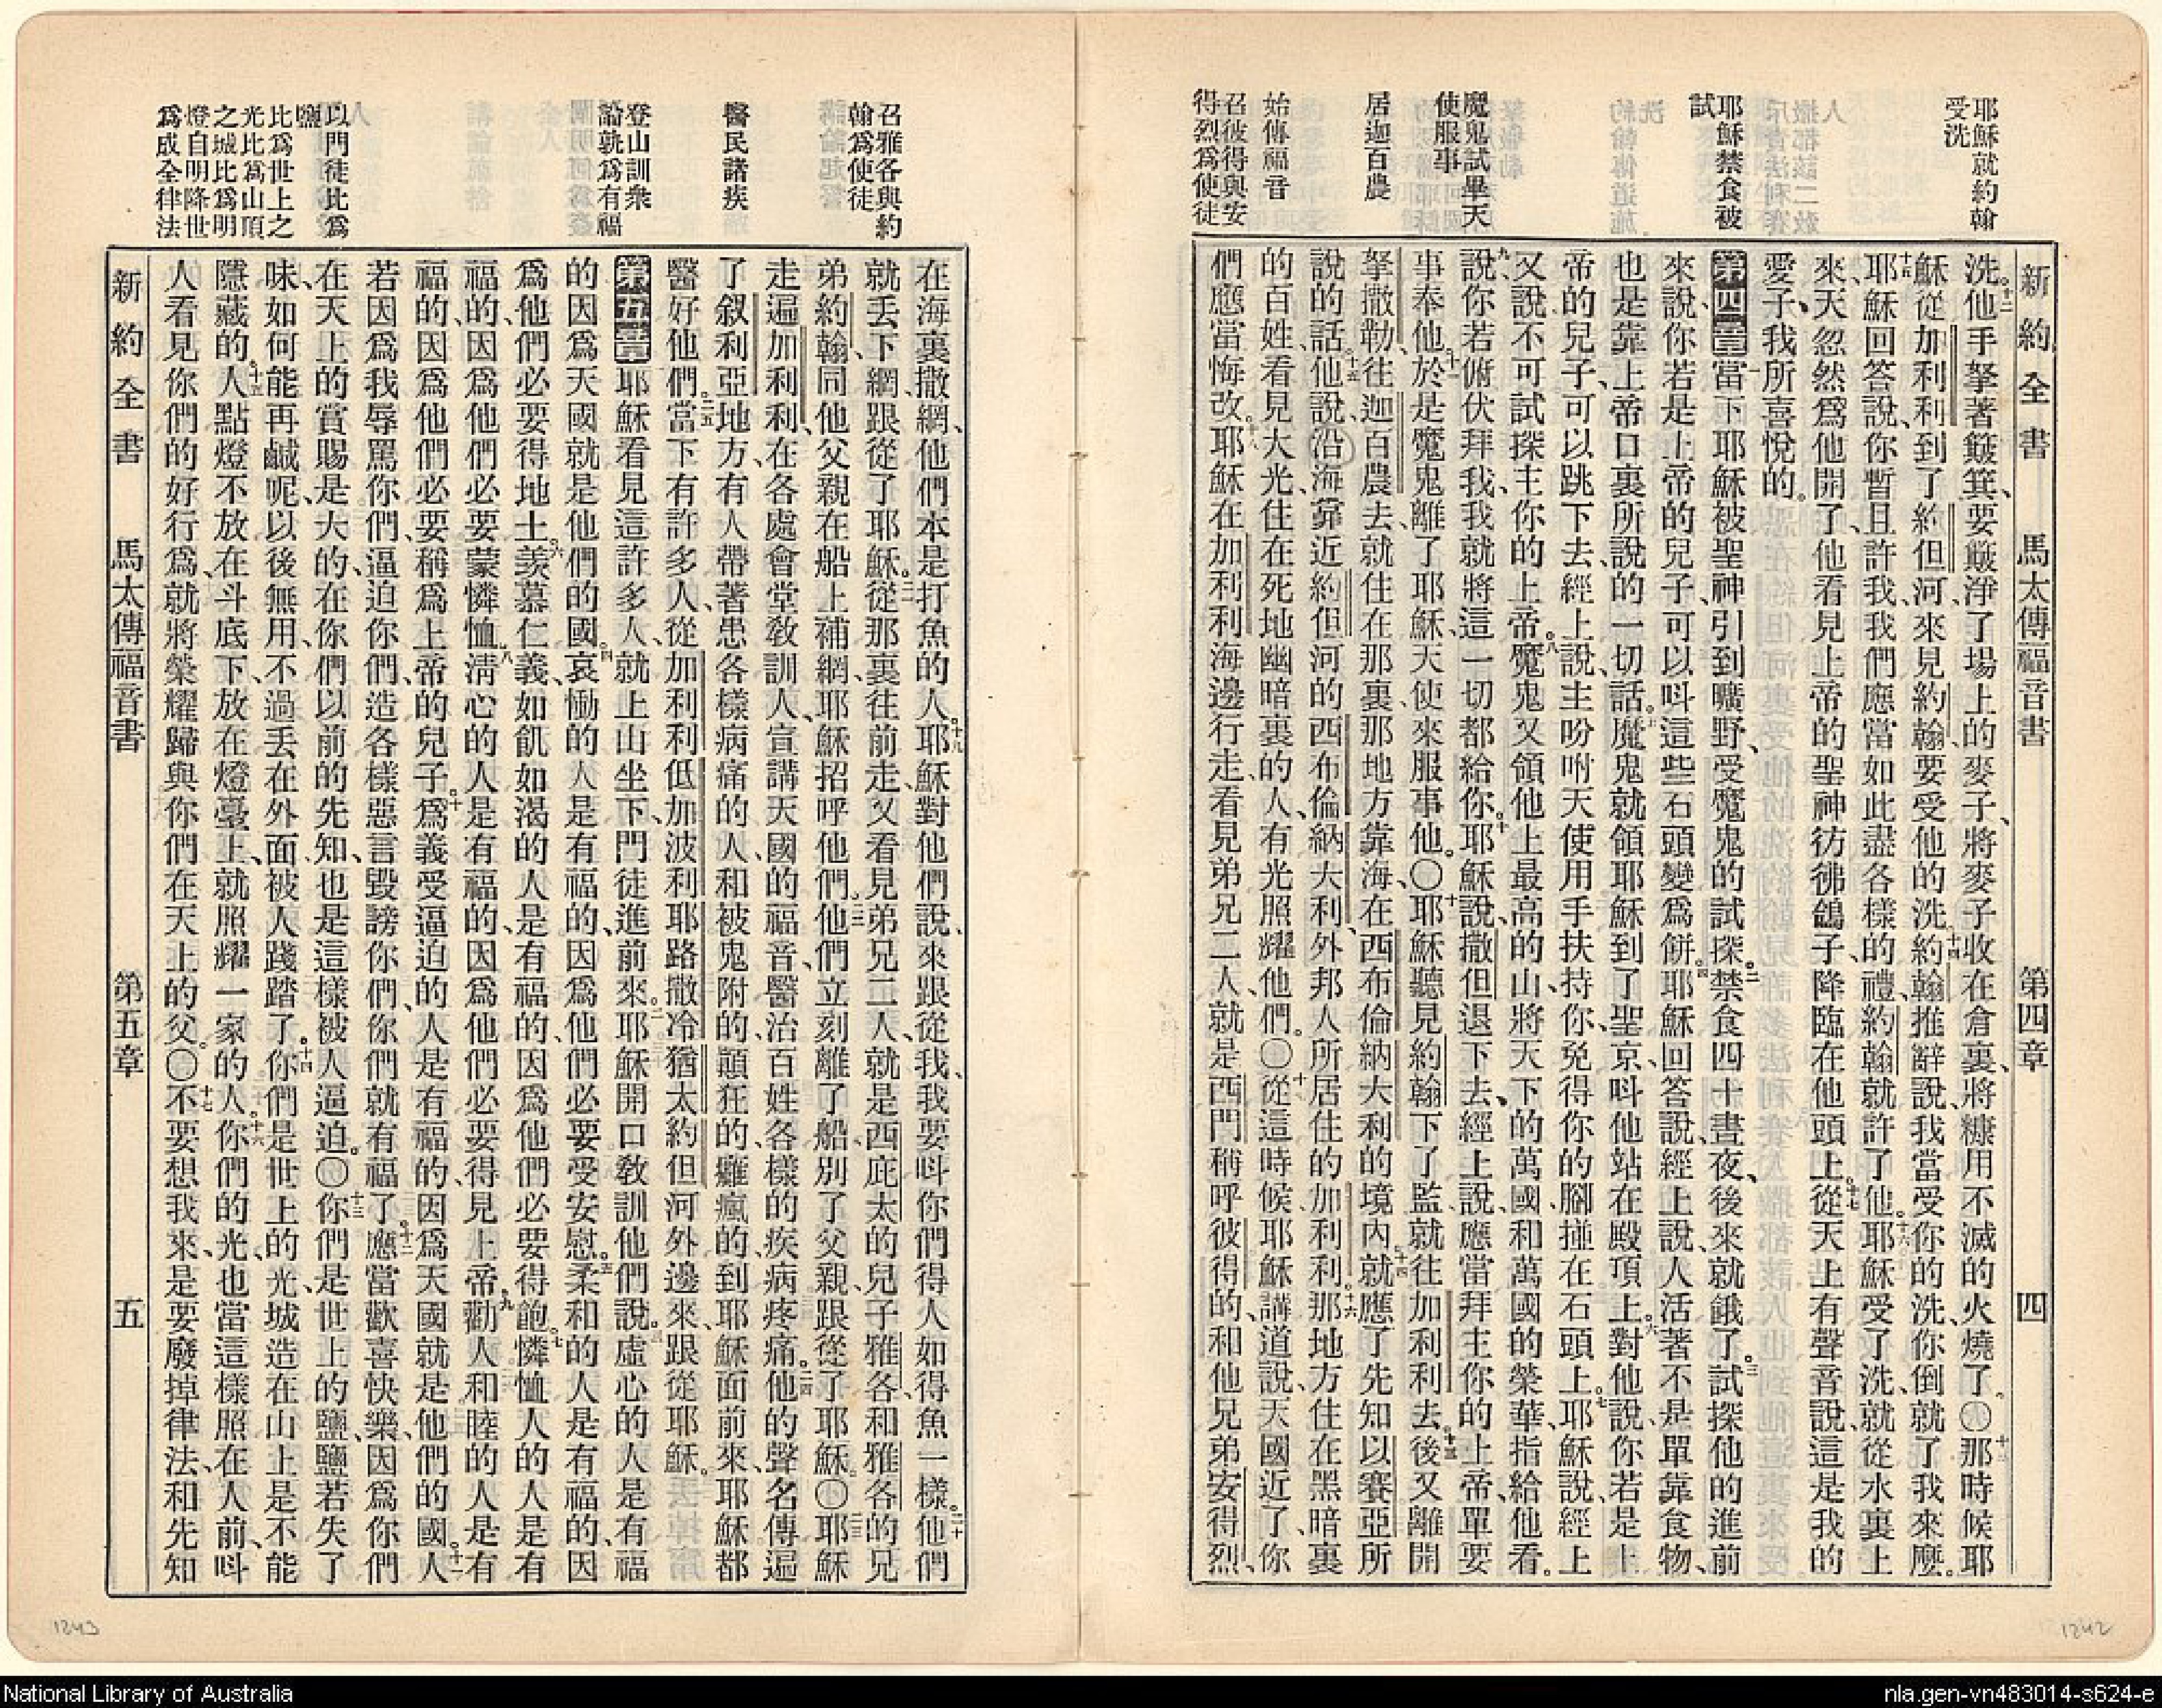 耶穌就約翰
受洗
耶穌禁食被
試
魔鬼試畢天
使服事
居迦百農
始傳福音
召彼得與安
得烈爲使徒
新約全書 馬太傳福音書 第四章 四
洗。十二他手拏著簸箕、要簸淨了場上的麥子、將麥子收在倉裏、將糠用不滅的火燒了。〇十三那時候耶
穌從加利利到了約但河來見約翰、要受他的洗。十四約翰推辭說、我當受你的洗、你倒就了我來麼。
十五耶穌回答說、你暫且許我、我們應當如此盡各樣的禮、約翰就許了他。十六耶穌受了洗、就從水裏上
來、天忽然爲他開了、他看見上帝的聖神彷彿鴿子降臨在他頭上。十七從天上有聲音說、這是我的
愛子、我所喜悅的。
第四章一當下耶穌被聖神引到曠野、受魔鬼的試探。二禁食四十晝夜、後來就餓了。三試探他的進前
來說、你若是上帝的兒子、可以呌這些石頭變爲餅。四耶穌回答說、經上說、人活著不是單靠食物、
也是靠上帝口裏所說的一切話。五魔鬼就領耶穌到了聖京、呌他站在殿頂上。六對他說、你若是上
帝的兒子、可以跳下去、經上說、主吩咐天使用手扶持你、免得你的腳撞在石頭上。七耶穌說、經上
又說、不可試探主你的上帝。八魔鬼又領他上最高的山、將天下的萬國和萬國的榮華、指給他看。
九說、你若俯伏拜我、我就將這一切都給你。十耶穌說、撒但退下去、經上說、應當拜主你的上帝、單要
事奉他。十一於是魔鬼離了耶穌、天使來服事他。〇十二耶穌聽見約翰下了監、就往加利利去。十三後又離開
拏撒勒、往迦百農去、就住在那裏、那地方靠海、在西布倫納大利的境內。十四就應了先知以賽亞所
說的話。十五他說、沿海靠近約但河的西布倫納大利、外邦人所居住的加利利。十六那地方住在黑暗裏
的百姓、看見大光、住在死地幽暗裏的人、有光照耀他們。〇十七從這時候耶穌講道說、天國近了、你
們應當悔改。十八耶穌在加利利海邊行走、看見弟兄二人、就是西門稱呼彼得的、和他兄弟安得烈、
召雅各與約
翰爲使徒
醫民諸疾
登山訓衆
論孰爲有福
以門徒比爲
鹽
比爲世上之
光比爲山頂
之城比爲明
燈自明降世
爲成全律法
在海裏撒網、他們本是打魚的人。十九耶穌對他們說、來跟從我、我要呌你們得人如得魚一樣。二十他們
就丟下網、跟從了耶穌。二一從那裏往前走、又看見弟兄二人、就是西庇太的兒子雅各、和雅各的兄
弟約翰、同他父親在船上補網、耶穌招呼他們。二二他們立刻離了船、別了父親、跟從了耶穌。〇二三耶穌
走遍加利利、在各處會堂敎訓人、宣講天國的福音、醫治百姓各樣的疾病疼痛。二四他的聲名傳遍
了叙利亞地方、有人帶著患各樣病痛的人、和被鬼附的、顚狂的、癱瘋的、到耶穌面前來、耶穌都
醫好他們。二五當下有許多人、從加利利低加波利耶路撒冷猶太約但河外邊來、跟從耶穌。
第五章一耶穌看見這許多人、就上山坐下、門徒進前來。二耶穌開口敎訓他們說。三虛心的人是有福
的、因爲天國就是他們的國。四哀慟的人是有福的、因爲他們必要受安慰。五柔和的人是有福的、因
爲他們必要得地土。六羨慕仁義、如飢如渴的人是有福的、因爲他們必要得飽。七憐恤人的人是有
福的、因爲他們必要蒙憐恤。八淸心的人是有福的、因爲他們必要得見上帝。九勸人和睦的人是有
福的、因爲他們必要稱爲上帝的兒子。十爲義受逼迫的人是有福的、因爲天國就是他們的國。十一人
若因爲我辱罵你們、逼迫你們、造各樣惡言毀謗你們、你們就有福了。十二應當歡喜快樂、因爲你們
在天上的賞賜是大的、在你們以前的先知、也是這樣被人逼迫。〇十三你們是世上的鹽、鹽若失了
味、如何能再鹹呢、以後無用、不過丟在外面被人踐踏了。十四你們是世上的光、城造在山上是不能
隱藏的。十五人點燈不放在斗底下、放在燈臺上、就照耀一家的人。十六你們的光、也當這樣照在人前、呌
人看見你們的好行爲、就將榮耀歸與你們在天上的父。〇十七不要想我來、是要廢掉律法、和先知
新約全書 馬太傳福音書 第五章 五
1243
1242
National Library of Australia
nla.gen-vn483014-s624-e